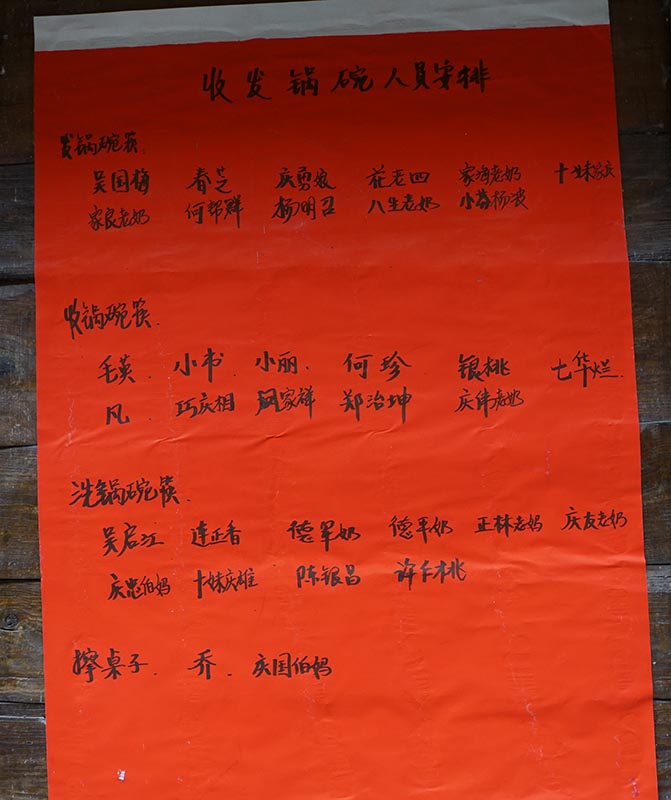 收发锅碗人员安排
发锅碗筷
吴国梅 春芝 庆勇娘 花老四 家海老奶 十妹家庆
家良老奶 何帮群 杨明召 八生老奶 小芬杨波
收锅碗筷
毛英 小书 小丽 何珍 银桃 七华烂
凡 巧庆相 家祥 郑治坤 庆伟老奶
洗锅碗筷
吴启江 连正香 德军奶 德平奶 正林老妈 庆友老奶
庆忠伯妈 十妹庆雄 陈银昌 许仁桃
擦桌子 乔 庆国伯妈